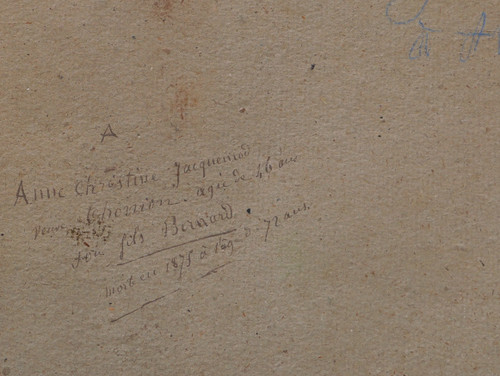 A
Anne Christine Jacquemod
veuve Thorion. agée de 46 ans
son fils Bernard
mort en 1875 à l'age de 72 ans.